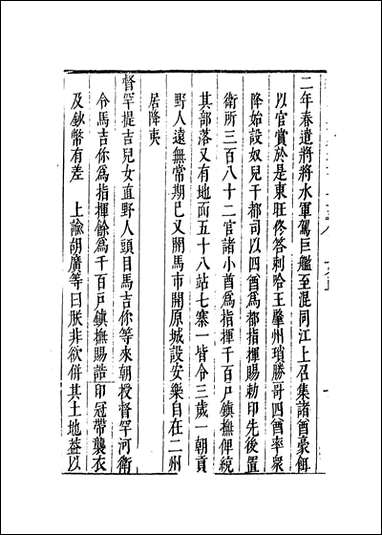 二年春遣將將水軍駕巨艦至混同江上召集諸酋豪餌
以官賞於是東旺佟答剌哈王肇州瑣勝哥四酋率衆
降始設奴兒干都司以四酋為都指揮賜勅印先後置
衛所三百八十二官諸小酋為指揮千百戶鎮撫俾統
其部落又有地面五十八站七寨一皆令三歲一朝貢
野人遠無常期已又開馬市開原城設安樂自在二州
居降夷
督罕提吉兒女直野人頭目馬吉你等來朝授督罕河衛
令馬吉你為指揮餘為千百戶鎮撫賜誥印冠帶襲衣
及鈔幣有差　上諭胡廣等曰朕非欲併其土地葢以